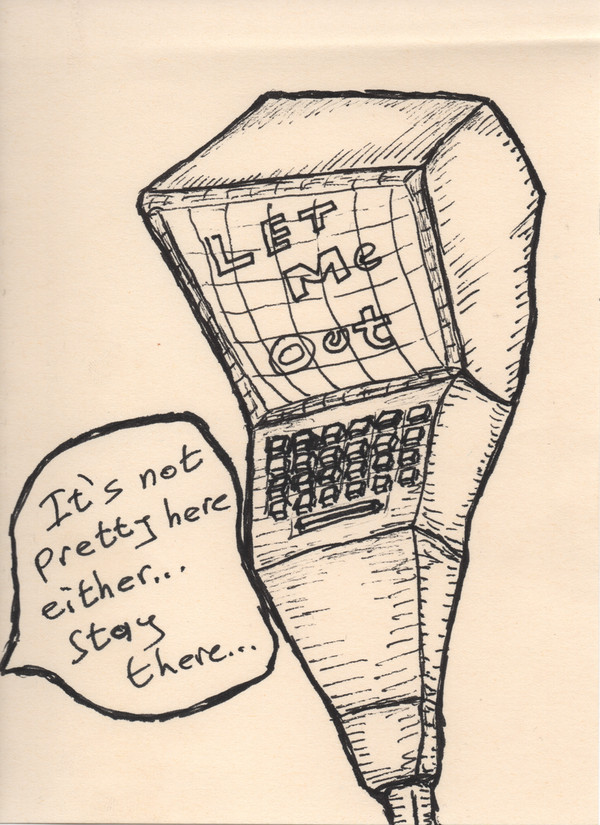 LET
Me
Out
It's not
pretty here
either...
Stay
there...